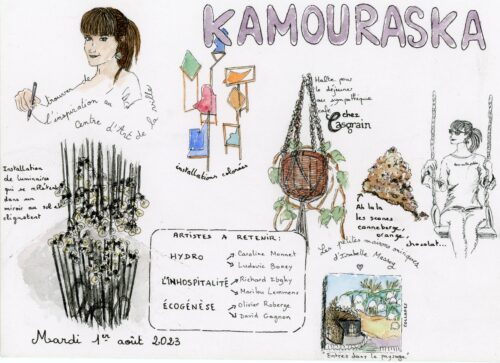 KAMOURASKA
trouver de
l'inspiration au
Centre d'Art de la ville
installations colorées
Halte pour
le déjeuner
au sympathique
café
chez
Casgrain
Installation
de luminaires
qui se reflètent
dans un
miroir au sol et
clignotent
Ah la la
les scones
canneberge,
orange,
chocolat...
ARTISTES A RETENIR:
HYDRO
Caroline Monnet
Ludovic Boney
L'INHOSPITALITÉ
Richard Ibghy
Marilou Lemmens
ÉCOGÉNÈSE
Olivier Roberge
David Gagnon
Les petites maisons oniriques
d'Isabelle
"Entrez dans le paysage"
Mardi 1er août 2023